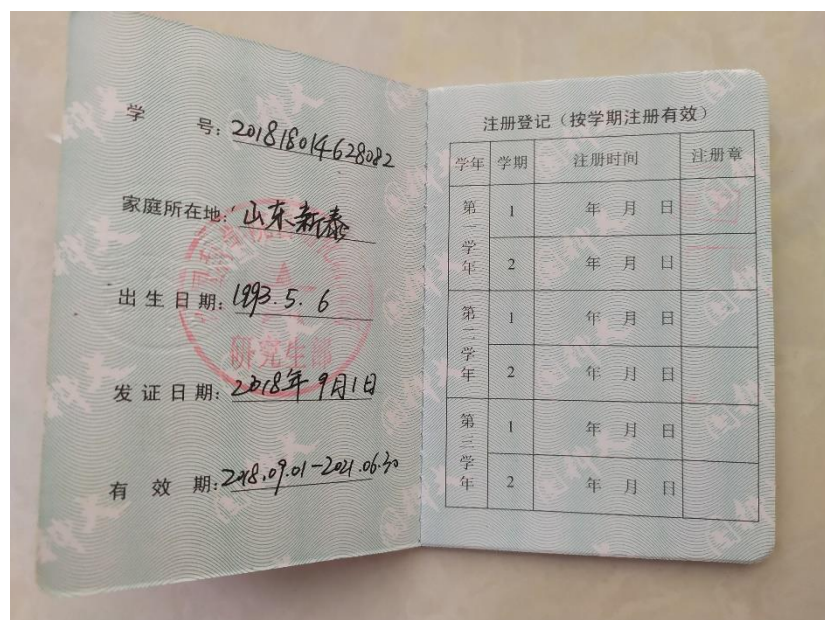 学 号：201818014628082
家庭所在地：山东新泰
出生日期：1993.5.6
发证日期：2018年9月1日
有效期：2018.09.01-2021.06.30
研究生部
注册登记（按学期注册有效）
学年 学期 注册时间 注册章
第一学年 1 年 月 日
2 年 月 日
第二学年 1 年 月 日
2 年 月 日
第三学年 1 年 月 日
2 年 月 日